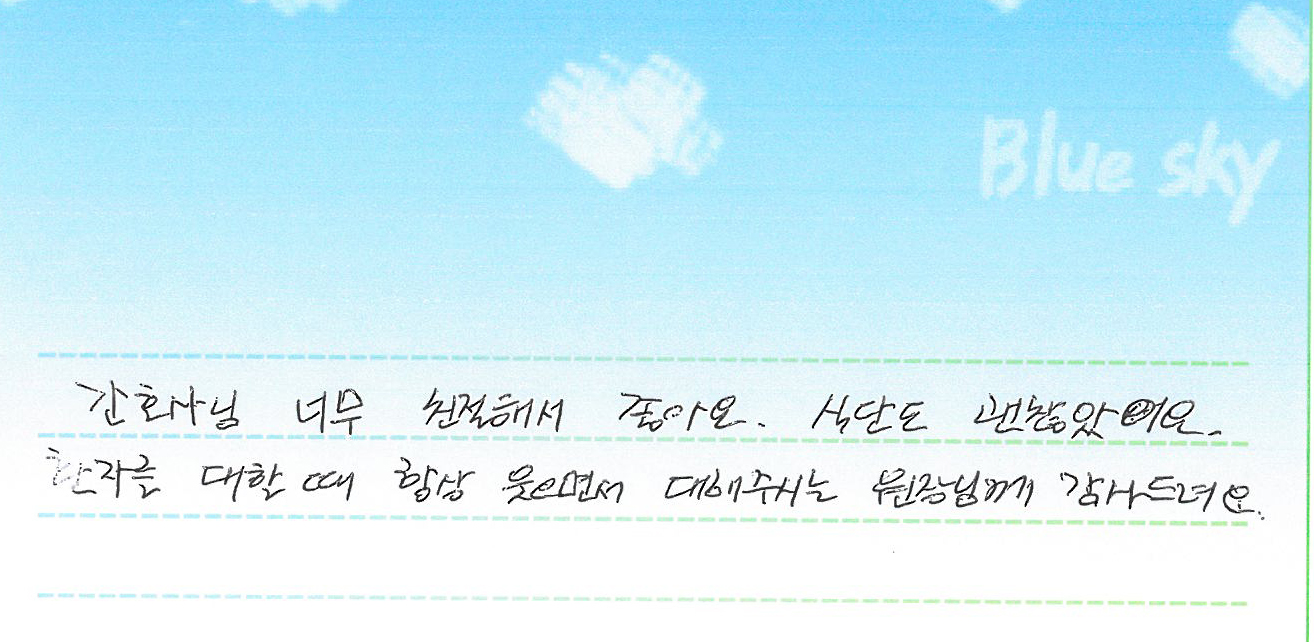 Blue sky
간호사님 너무 친절해서 좋아요. 식단도 괜찮았어요.
환자를 대할 때 항상 웃으면서 대해주시는 원장님께 감사드려요.